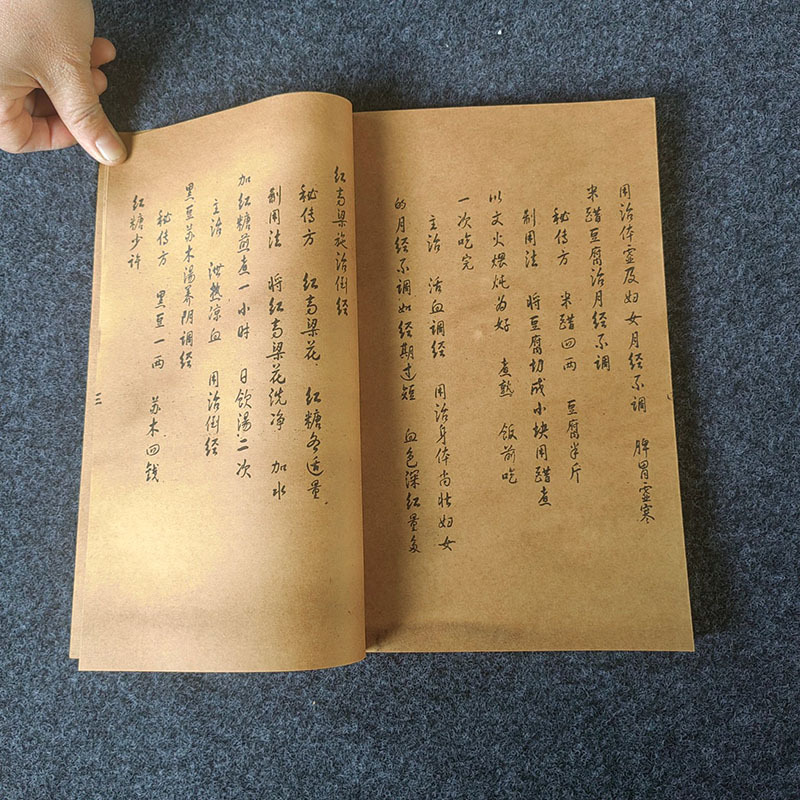 用治体虚及妇女月经不调 脾胃虚寒
米醋豆腐治月经不调
秘传方 米醋四两 豆腐半斤
制用法 将豆腐切成小块用醋煮
以文火煨炖为好 煮熟 饭前吃
一次吃完
主治 活血调经 用治身体尚壮妇女
的月经不调如经期过短 血色深红量多
红高梁施治倒经
秘传方 红高梁花 红糖各适量
制用法 将红高梁花洗净 加水
加红糖煎煮一小时 日饮汤二次
主治 泄热凉血 用治倒经
黑豆苏木汤养阴调经
秘传方 黑豆一两 苏木四钱
红糖少许
三